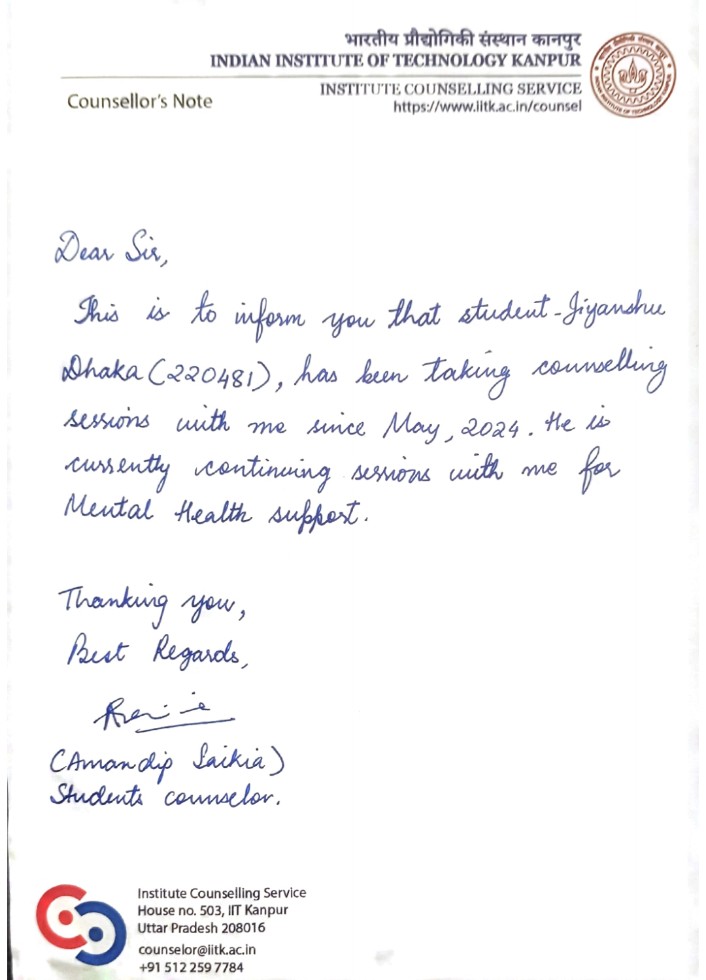 भारतीय प्रौद्योगिकी संस्थान कानपुर
INDIAN INSTITUTE OF TECHNOLOGY KANPUR
INSTITUTE COUNSELLING SERVICE
https://www.iitk.ac.in/counsel
Counsellor's Note
Dear Sir,
This is to inform you that student-Jiyanshu
Dhaka (220481), has been taking counselling
sessions with me since May, 2024. He is
currently continuing sessions with me for
Mental Health support.
Thanking you,
Best Regards,
(Amandip Saikia)
Students counselor.
Institute Counselling Service
House no. 503, IIT Kanpur
Uttar Pradesh 208016
counselor@iitk.ac.in
+91 512 259 7784